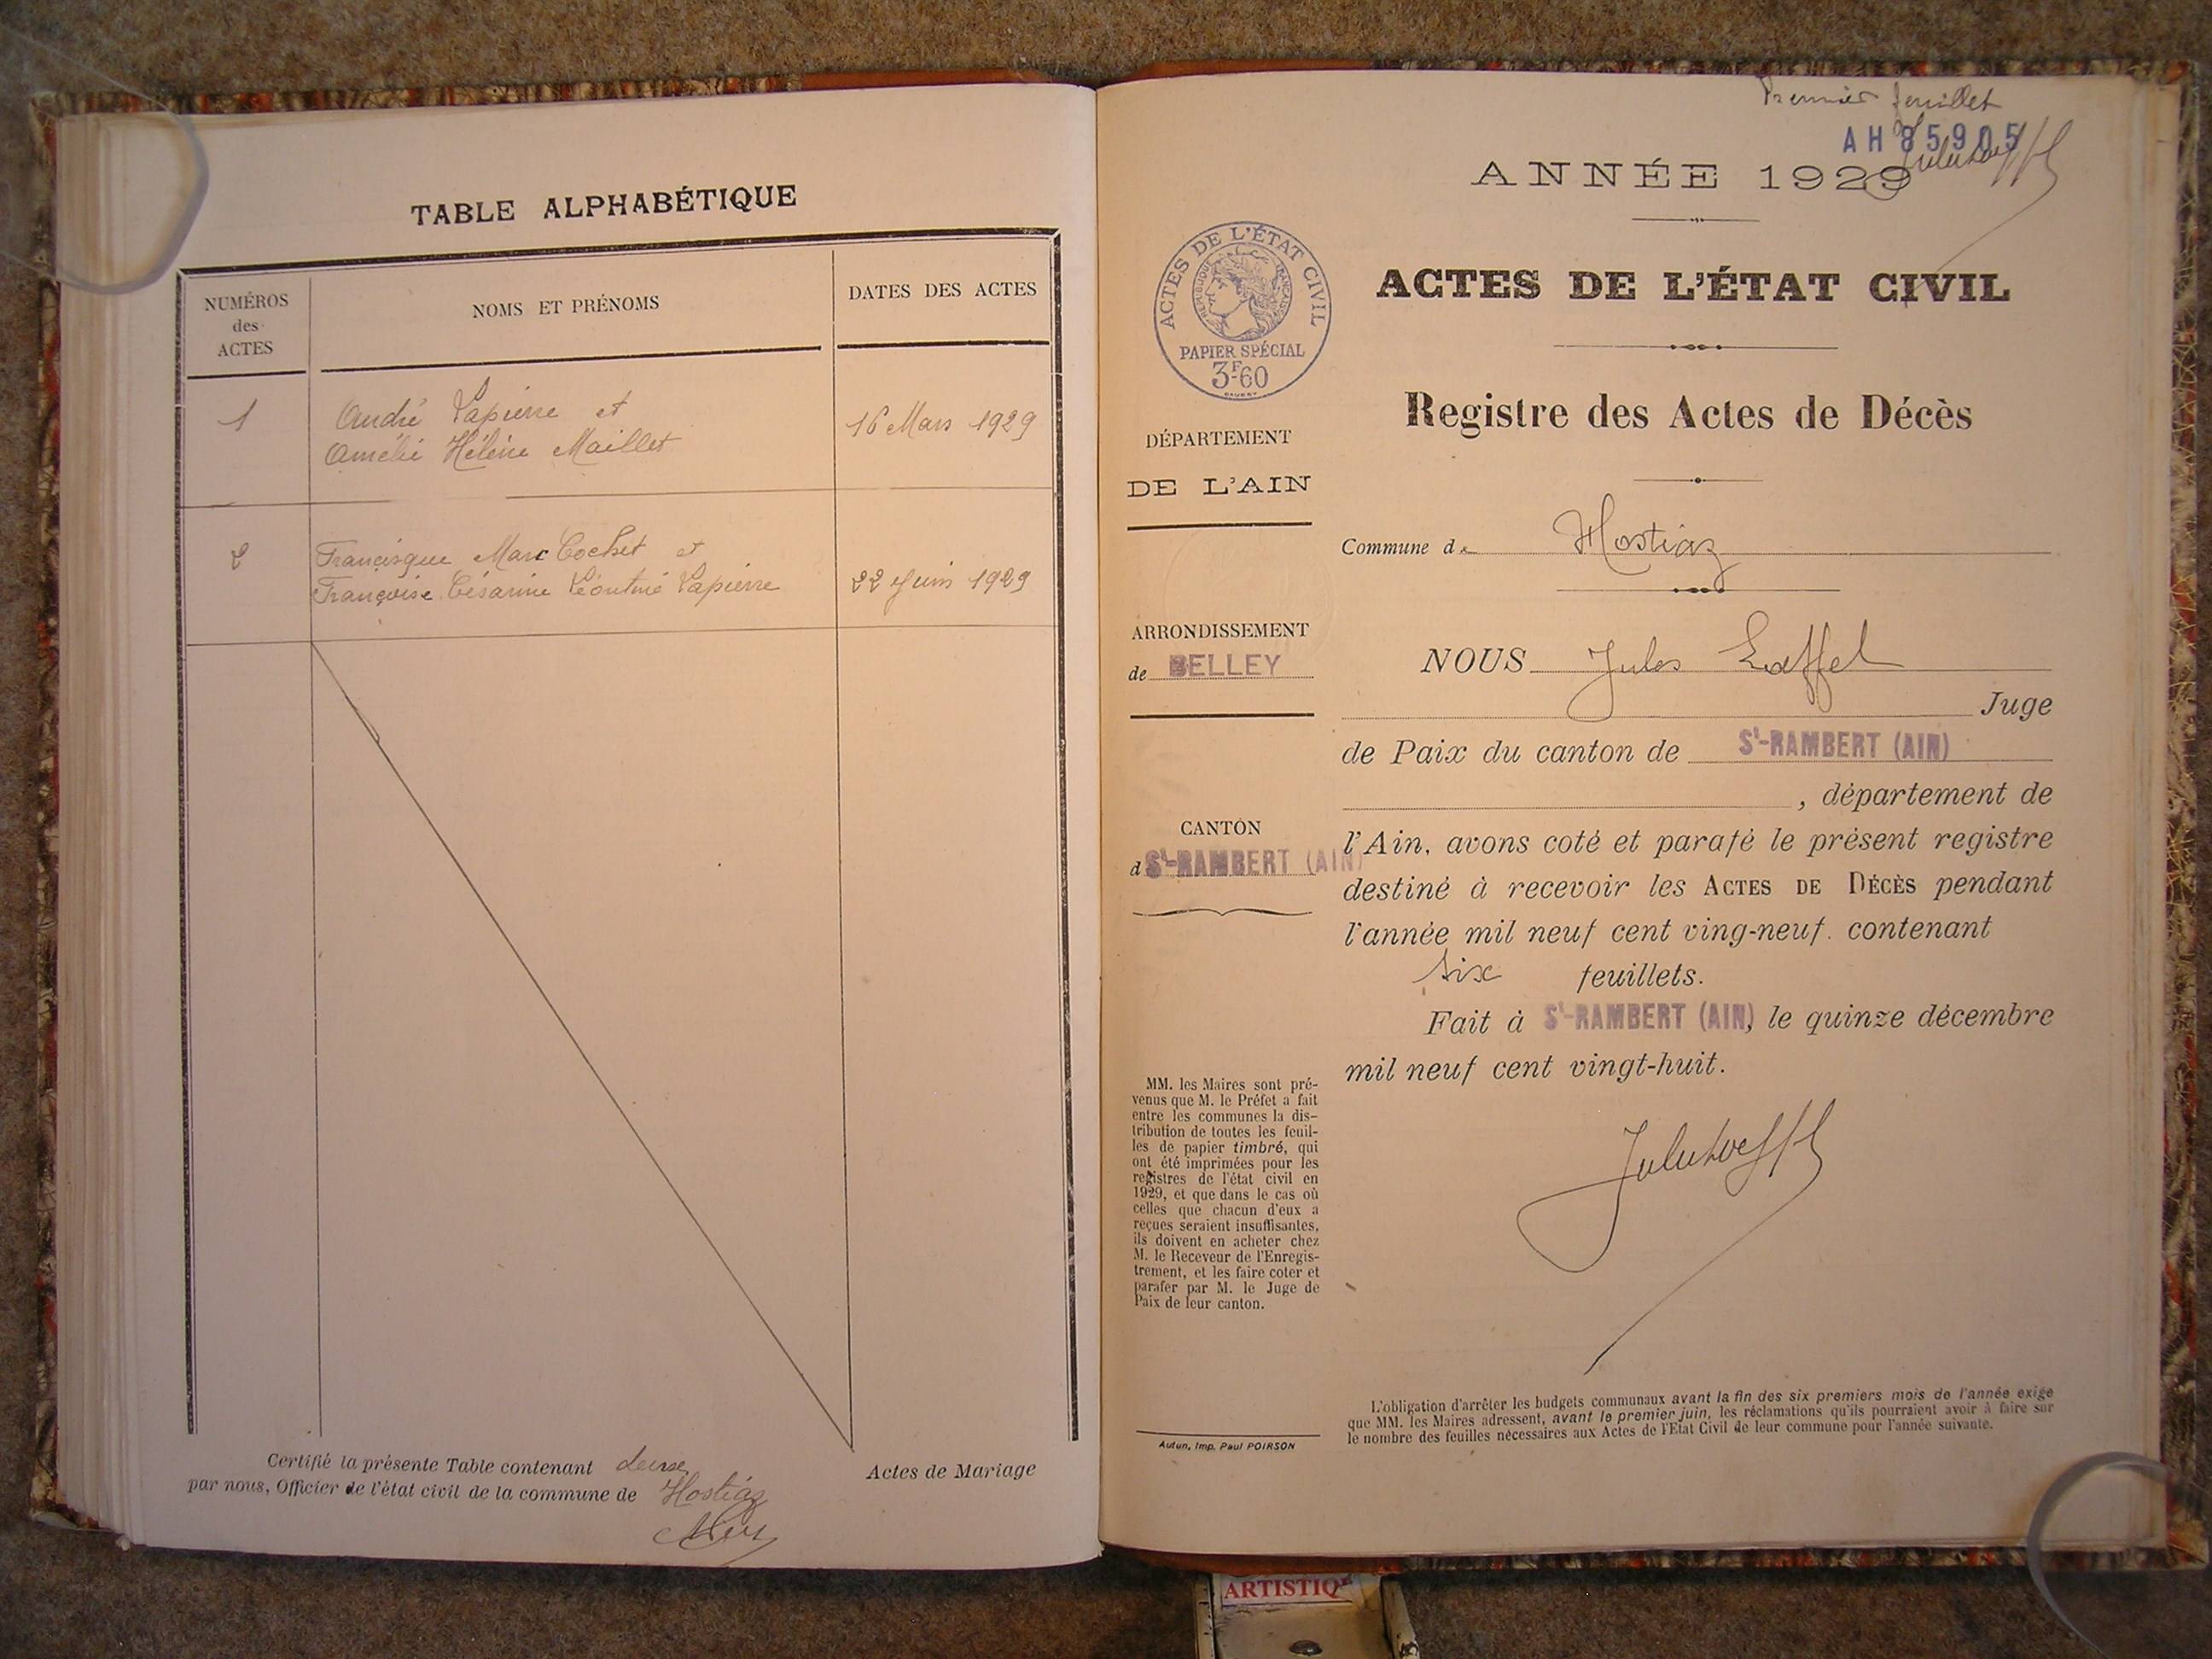 TABLE ALPHABÉTIQUE
NUMÉROS
des
ACTES
NOMS ET PRÉNOMS
DATES DES ACTES
1
André Lapierre et
Amélie Hélène Maillet
16 Mars 1929
2
Francisque Marc Cochet et
Françoise Césarine Léontine Lapierre
22 Juin 1929
Certifié la présente Table contenant deux Actes de Mariage
par nous, Officier de l'état civil de la commune de Hostiaz
Premier feuillet
AH 85905
ANNÉE 1929
ACTES DE L'ÉTAT CIVIL
RÉPUBLIQUE FRANÇAISE
PAPIER SPÉCIAL
3F60
DÉPARTEMENT
DE L'AIN
ARRONDISSEMENT
de BELLEY
CANTON
d St-RAMBERT (AIN)
MM. les Maires sont pré-
venus que M. le Préfet a fait
entre les communes la dis-
tribution de toutes les feuil-
les de papier timbré, qui
ont été imprimées pour les
registres de l'état civil en
1929, et que dans le cas où
celles que chacun d'eux a
reçues seraient insuffisantes,
ils doivent en acheter chez
M. le Receveur de l'Enregis-
trement, et les faire coter et
parafer par M. le Juge de
Paix de leur canton.
Autun, Imp. Paul POIRSON
ACTES DE L'ÉTAT CIVIL
Registre des Actes de Décès
Commune de Hostiaz
NOUS Jules
Juge
de Paix du canton de St-RAMBERT (AIN)
, département de
l'Ain, avons coté et parafé le présent registre
destiné à recevoir les ACTES DE DÉCÈS pendant
l'année mil neuf cent ving-neuf. contenant
six feuillets.
Fait à St-RAMBERT (AIN), le quinze décembre
mil neuf cent vingt-huit.
L'obligation d'arrêter les budgets communaux avant la fin des six premiers mois de l'année exige
que MM. les Maires adressent, avant le premier juin, les réclamations qu'ils pourraient avoir à faire sur
le nombre des feuilles nécessaires aux Actes de l'Etat Civil de leur commune pour l'année suivante.
ARTISTIQ